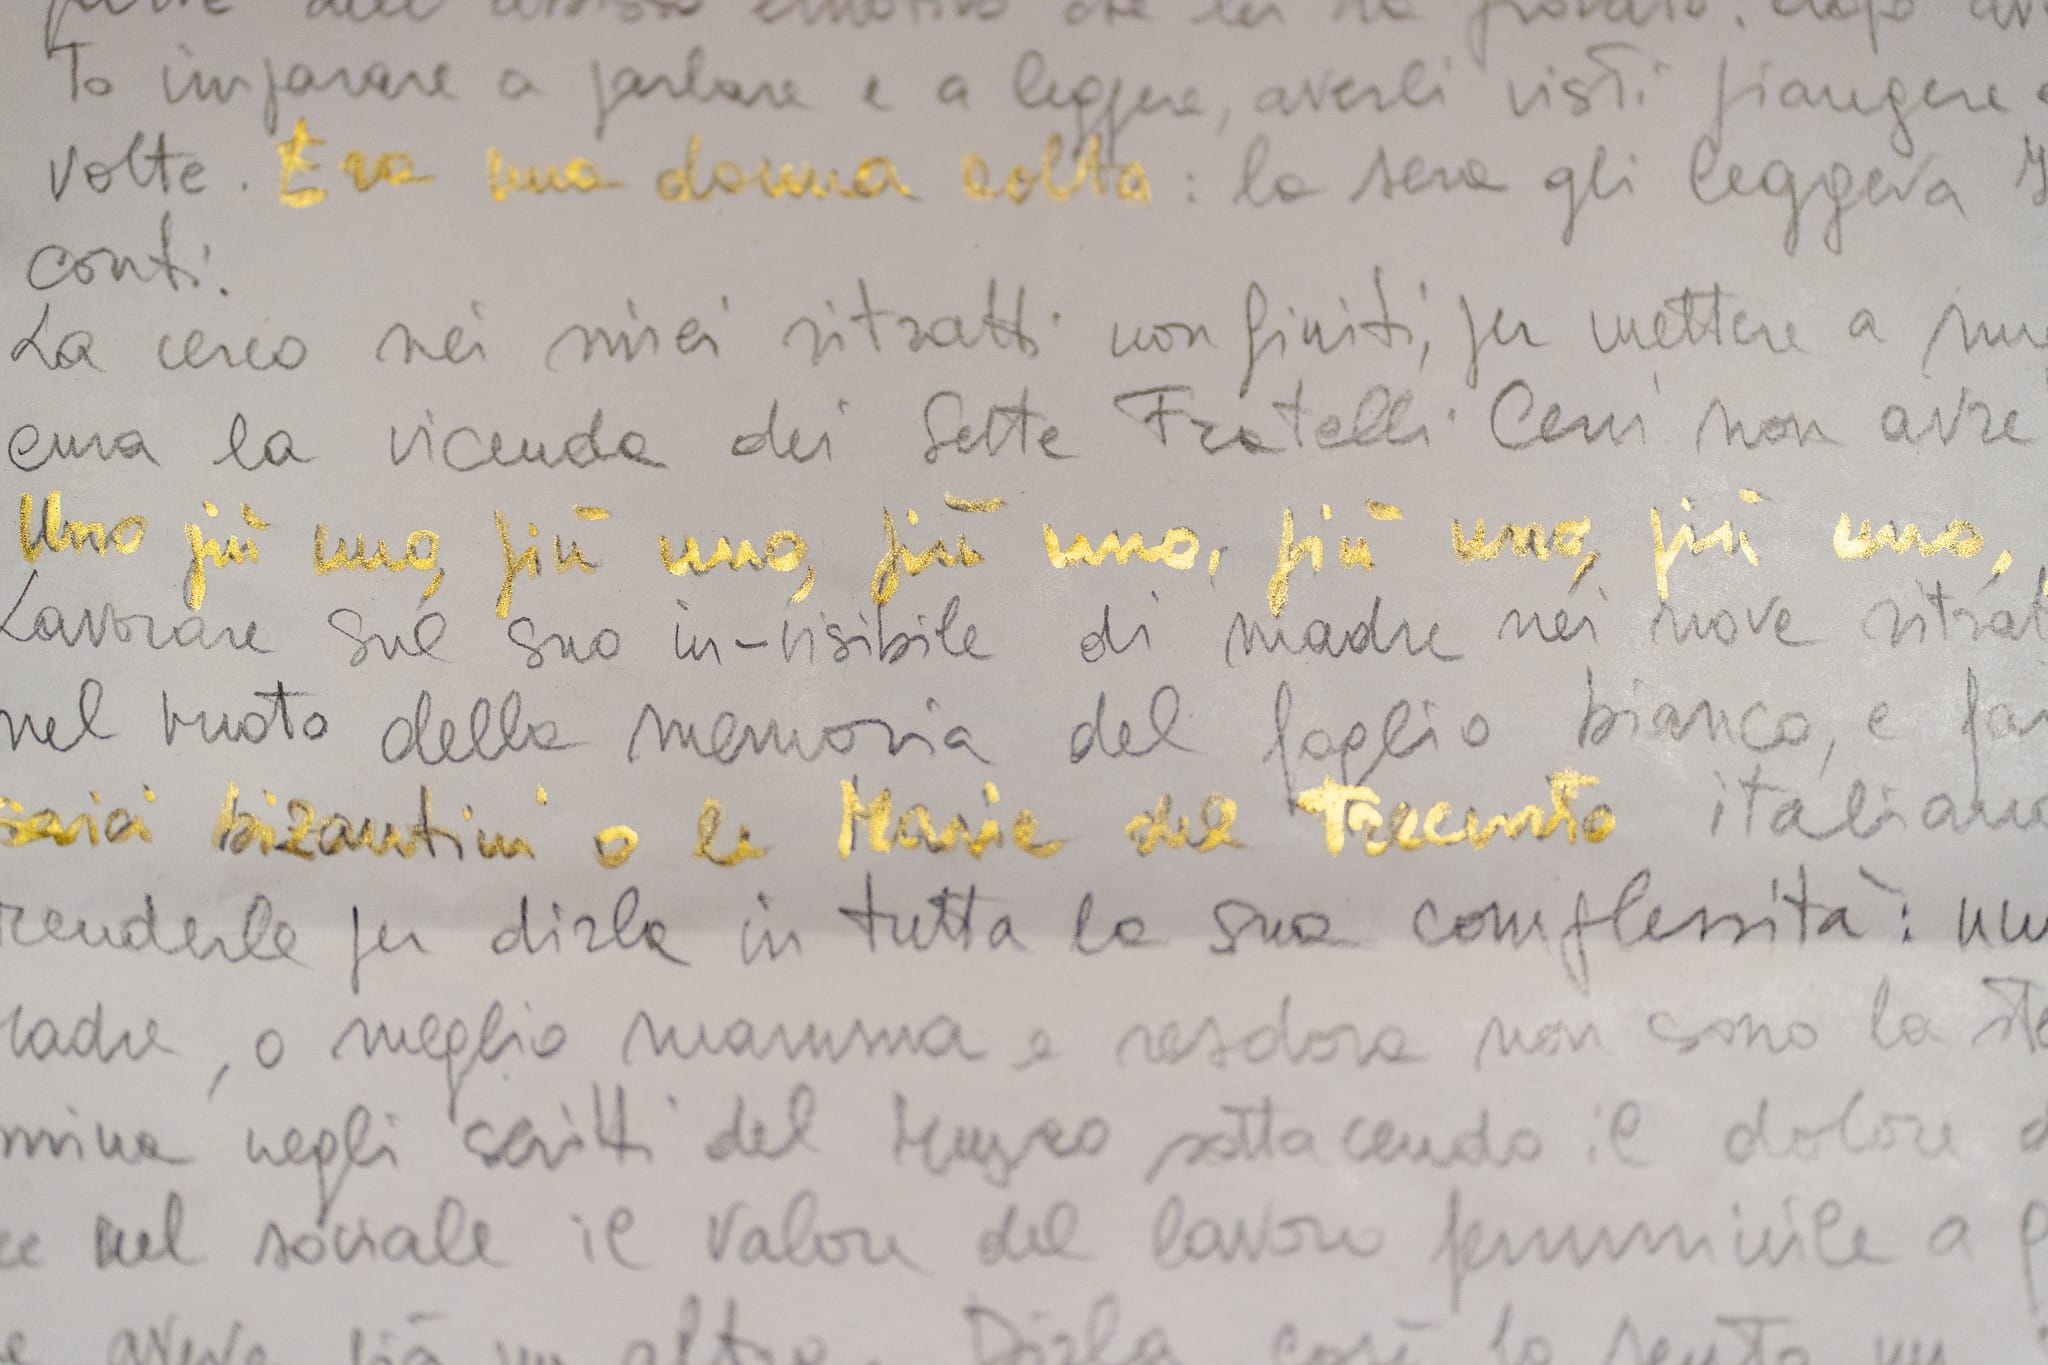 emotivo che lei ha provato. dopo
To imparare a parlare e a leggere, averli visti piangere
volte. Era una donna colta: la sera gli leggeva
conti.
La cerco nei miei ritratti non finiti, per mettere a
cura la vicenda dei Sette Fratelli Cervi non avre
Uno più uno, più uno, più uno, più uno, più uno,
Lavorare sul suo in-visibile di madre nei nove ritrat
nel vuoto della memoria del foglio bianco, e
saici bizantini o le Marie del Trecento italiano
renderle per dirla in tutta la sua complessità:
madre, o meglio mamma e resdora non sono la ste
mina negli scritti del Museo sottacendo il dolore
nel sociale il valore del lavoro femminile a
e aveva già un altro. Dirla così la sento un